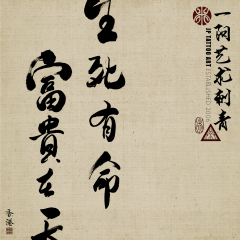 一阿艺术刺青
JF TATTOO ART ESTABLISHED 2006
生死有命
富貴在天
香港